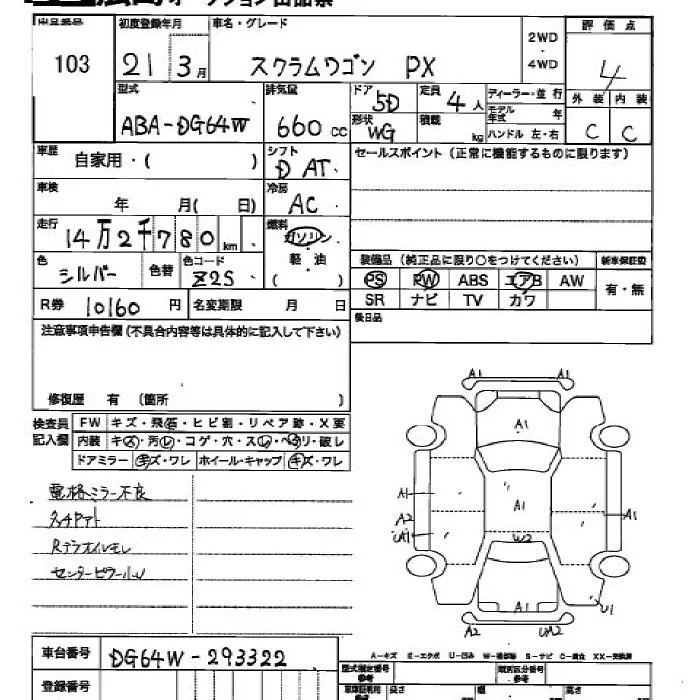 オークション出品票
出品番号 初度登録年月 車名・グレード 2WD・4WD 評価点
103 21 3月 スクラムワゴン PX 4
型式 排気量 ドア 定員 ディーラー・並行 外装 内装
ABA-DG64W 660cc 5D 4人 モデル年式 年 C C
形状 積載 ハンドル 左・右
WG kg
車歴 自家用・( ) シフト セールスポイント(正常に機能するものに限ります)
D AT
車検 年 月( 日) 冷房
AC
走行 14万2千780km 燃料
ガソリン
色 色替 色コード 軽・油 装備品(純正品に限り○をつけてください) 新車保証書
シルバー Z2S ( ) PS PW ABS エアB AW 有・無
R券 10160円 名変期限 月 日 SR ナビ TV カワ
後日品
注意事項申告欄(不具合内容等は具体的に記入して下さい)
修復歴 有 (箇所 )
検査員記入欄 FW キズ・飛石・ヒビ割・リペア跡・X要
内装 キズ・汚レ・コゲ・穴・スレ・ヘタリ・破レ
ドアミラー キズ・ワレ ホイール・キャップ キズ・ワレ
電格ミラー不良
Rデフオイルモレ
センターピラー小U
A1 A1
A1
A1 A1 A1
A2
UA1 W2
A1 U1
A2 UA2
車台番号 DG64W-293322
A-キズ E-エクボ U-凹み S-サビ C-腐食 XX-交換済
登録番号 型式指定番号 参考 類別区分番号 参考
長さ 幅 高さ